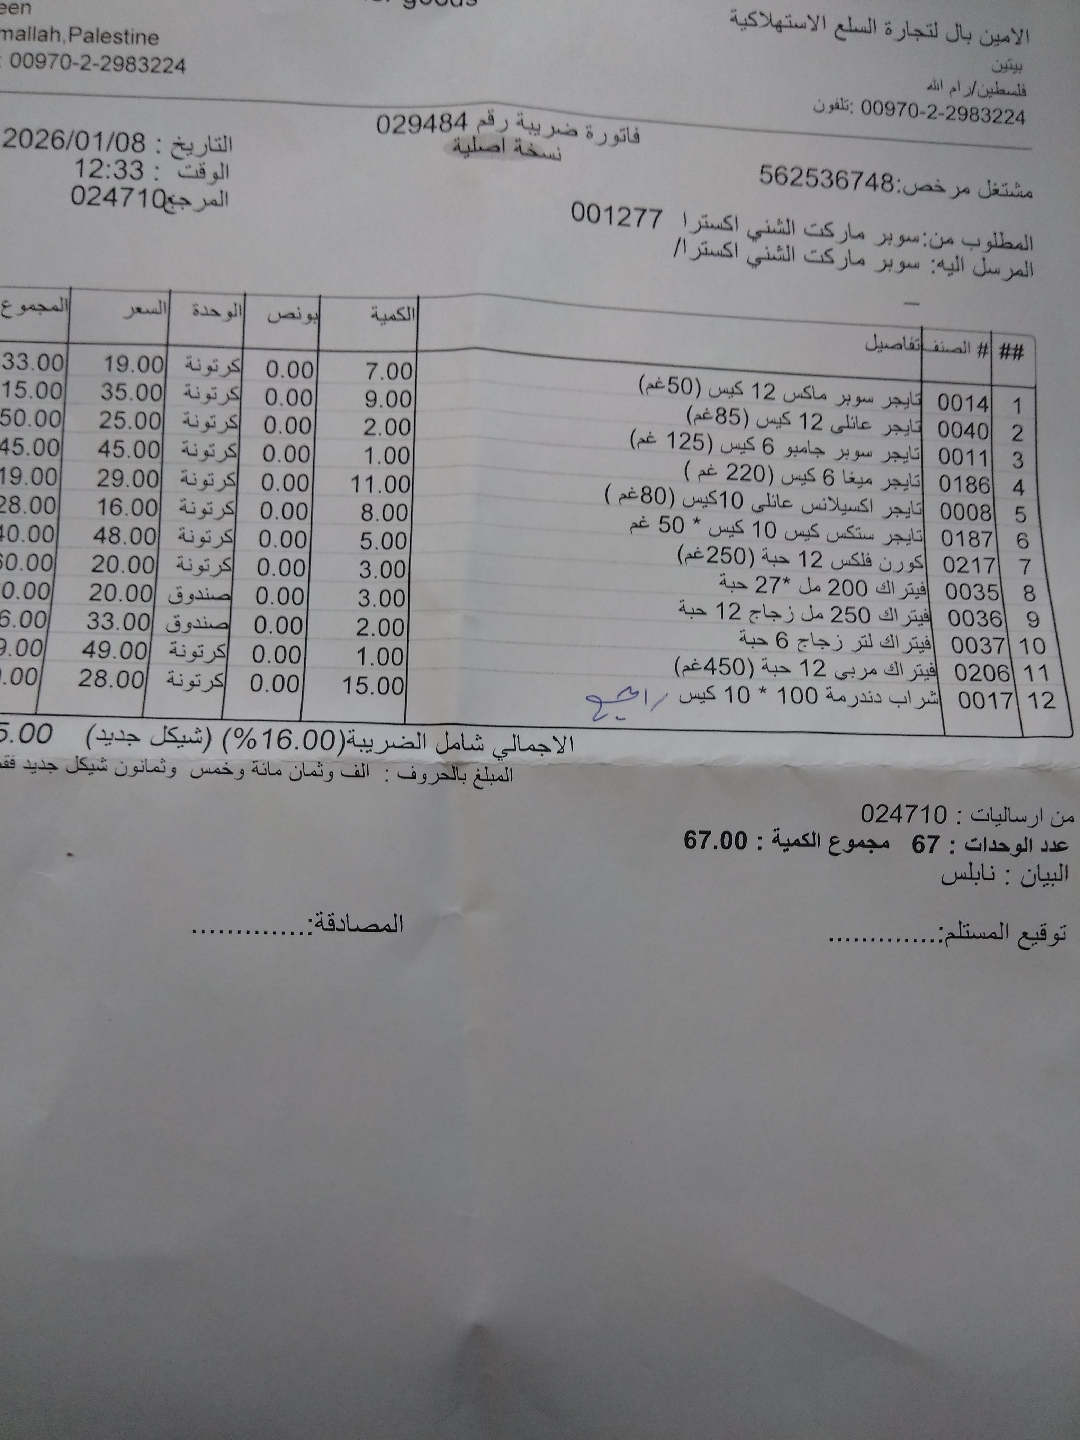 goods
een
mallah,Palestine
: 00970-2-2983224
الامين بال لتجارة السلع الاستهلاكية
بيتين
فلسطين/رام الله
تلفون: 00970-2-2983224
فاتورة ضريبة رقم 029484
نسخة اصلية
التاريخ : 2026/01/08
الوقت : 12:33
المرجع: 024710
مشتغل مرخص:562536748
المطلوب من:سوبر ماركت الشني اكسترا 001277
المرسل اليه: سوبر ماركت الشني اكسترا/
## # الصنف تفاصيل الكمية بونص الوحدة السعر المجموع
1 0014 تايجر سوبر ماكس 12 كيس (50غم) 7.00 0.00 كرتونة 19.00 33.00
2 0040 تايجر عائلي 12 كيس (85غم) 9.00 0.00 كرتونة 35.00 15.00
3 0011 تايجر سوبر جامبو 6 كيس (125 غم) 2.00 0.00 كرتونة 25.00 50.00
4 0186 تايجر ميغا 6 كيس (220 غم ) 1.00 0.00 كرتونة 45.00 45.00
5 0008 تايجر اكسيلانس عائلي 10كيس (80غم ) 11.00 0.00 كرتونة 29.00 19.00
6 0187 تايجر ستكس كيس 10 كيس * 50 غم 8.00 0.00 كرتونة 16.00 28.00
7 0217 كورن فلكس 12 حبة (250غم) 5.00 0.00 كرتونة 48.00 40.00
8 0035 فيتراك 200 مل *27 حبة 3.00 0.00 كرتونة 20.00 60.00
9 0036 فيتراك 250 مل زجاج 12 حبة 3.00 0.00 صندوق 20.00 0.00
10 0037 فيتراك لتر زجاج 6 حبة 2.00 0.00 صندوق 33.00 6.00
11 0206 فيتراك مربى 12 حبة (450غم) 1.00 0.00 كرتونة 49.00 9.00
12 0017 شراب دندرمة 100 * 10 كيس 15.00 0.00 كرتونة 28.00 .00
الاجمالي شامل الضريبة(16.00%) (شيكل جديد) 5.00
المبلغ بالحروف : الف وثمان مائة وخمس وثمانون شيكل جديد فقط
من ارساليات : 024710
عدد الوحدات : 67 مجموع الكمية : 67.00
البيان : نابلس
توقيع المستلم:.............. المصادقة:..............